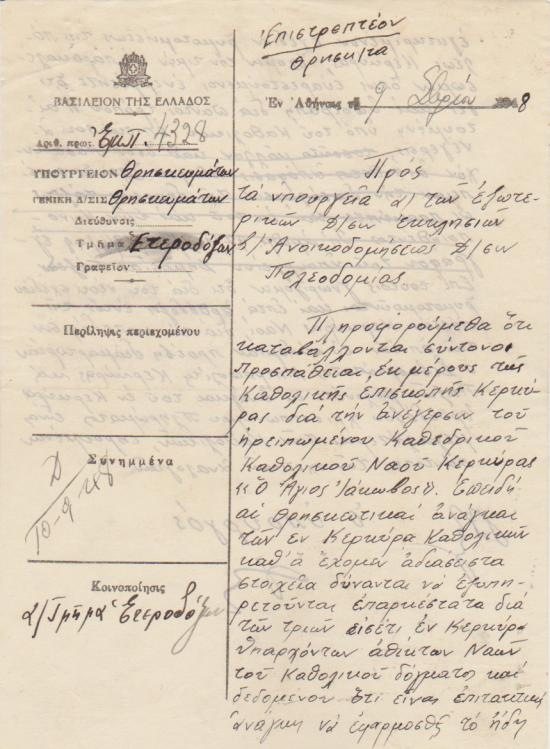 Ἐπιστρεπτέον
Θρησκ/τα
ΒΑΣΙΛΕΙΟΝ ΤΗΣ ΕΛΛΑΔΟΣ
Ἐν Ἀθήναις τῇ 9 1948
Ἀριθ. πρωτ. Ἐμπ. 4328
ΥΠΟΥΡΓΕΙΟΝ Θρησκευμάτων
ΓΕΝΙΚΗ Δ/ΣΙΣ Θρησκευμάτων
Διεύθυνσις
Τμῆμα Ἑτεροδόξων
Γραφεῖον
Περίληψις περιεχομένου
Συνημμένα
Δ
10-9-48
Κοινοποίησις
α/ Τμῆμα Ἑτεροδόξων
Πρὸς
τὰ ὑπουργεῖα α) τῶν Ἐξωτε-
ρικῶν Δ/σιν Ἐκκλησιῶν
β) Ἀνοικοδομήσεως Δ/σιν
Πολεοδομίας
Πληροφορούμεθα ὅτι
καταβάλλονται σύντονοι
προσπάθειαι, ἐκ μέρους τῆς
Καθολικῆς Ἐπισκοπῆς Κερκύ-
ρας διὰ τὴν ἀνέγερσιν τοῦ
ἠρειπωμένου Καθεδρικοῦ
Καθολικοῦ Ναοῦ Κερκύρας
«Ὁ Ἅγιος Ἰάκωβος». Ἐπειδὴ
αἱ θρησκευτικαὶ ἀνάγκαι
τῶν ἐν Κερκύρᾳ Καθολικῶν
καθ' ἃ ἔχομεν ἀδιάσειστα
στοιχεῖα δύνανται νὰ ἐξυπη-
ρετοῦνται ἐπαρκέστατα διὰ
τῶν τριῶν εἰσέτι ἐν Κερκύρᾳ
ὑπαρχόντων ἀθίκτων Ναῶν
τοῦ Καθολικοῦ δόγματος καὶ
δεδομένου ὅτι εἶναι ἐπιτακτικὴ
ἀνάγκη νὰ ἐφαρμοσθῇ τὸ ἤδη